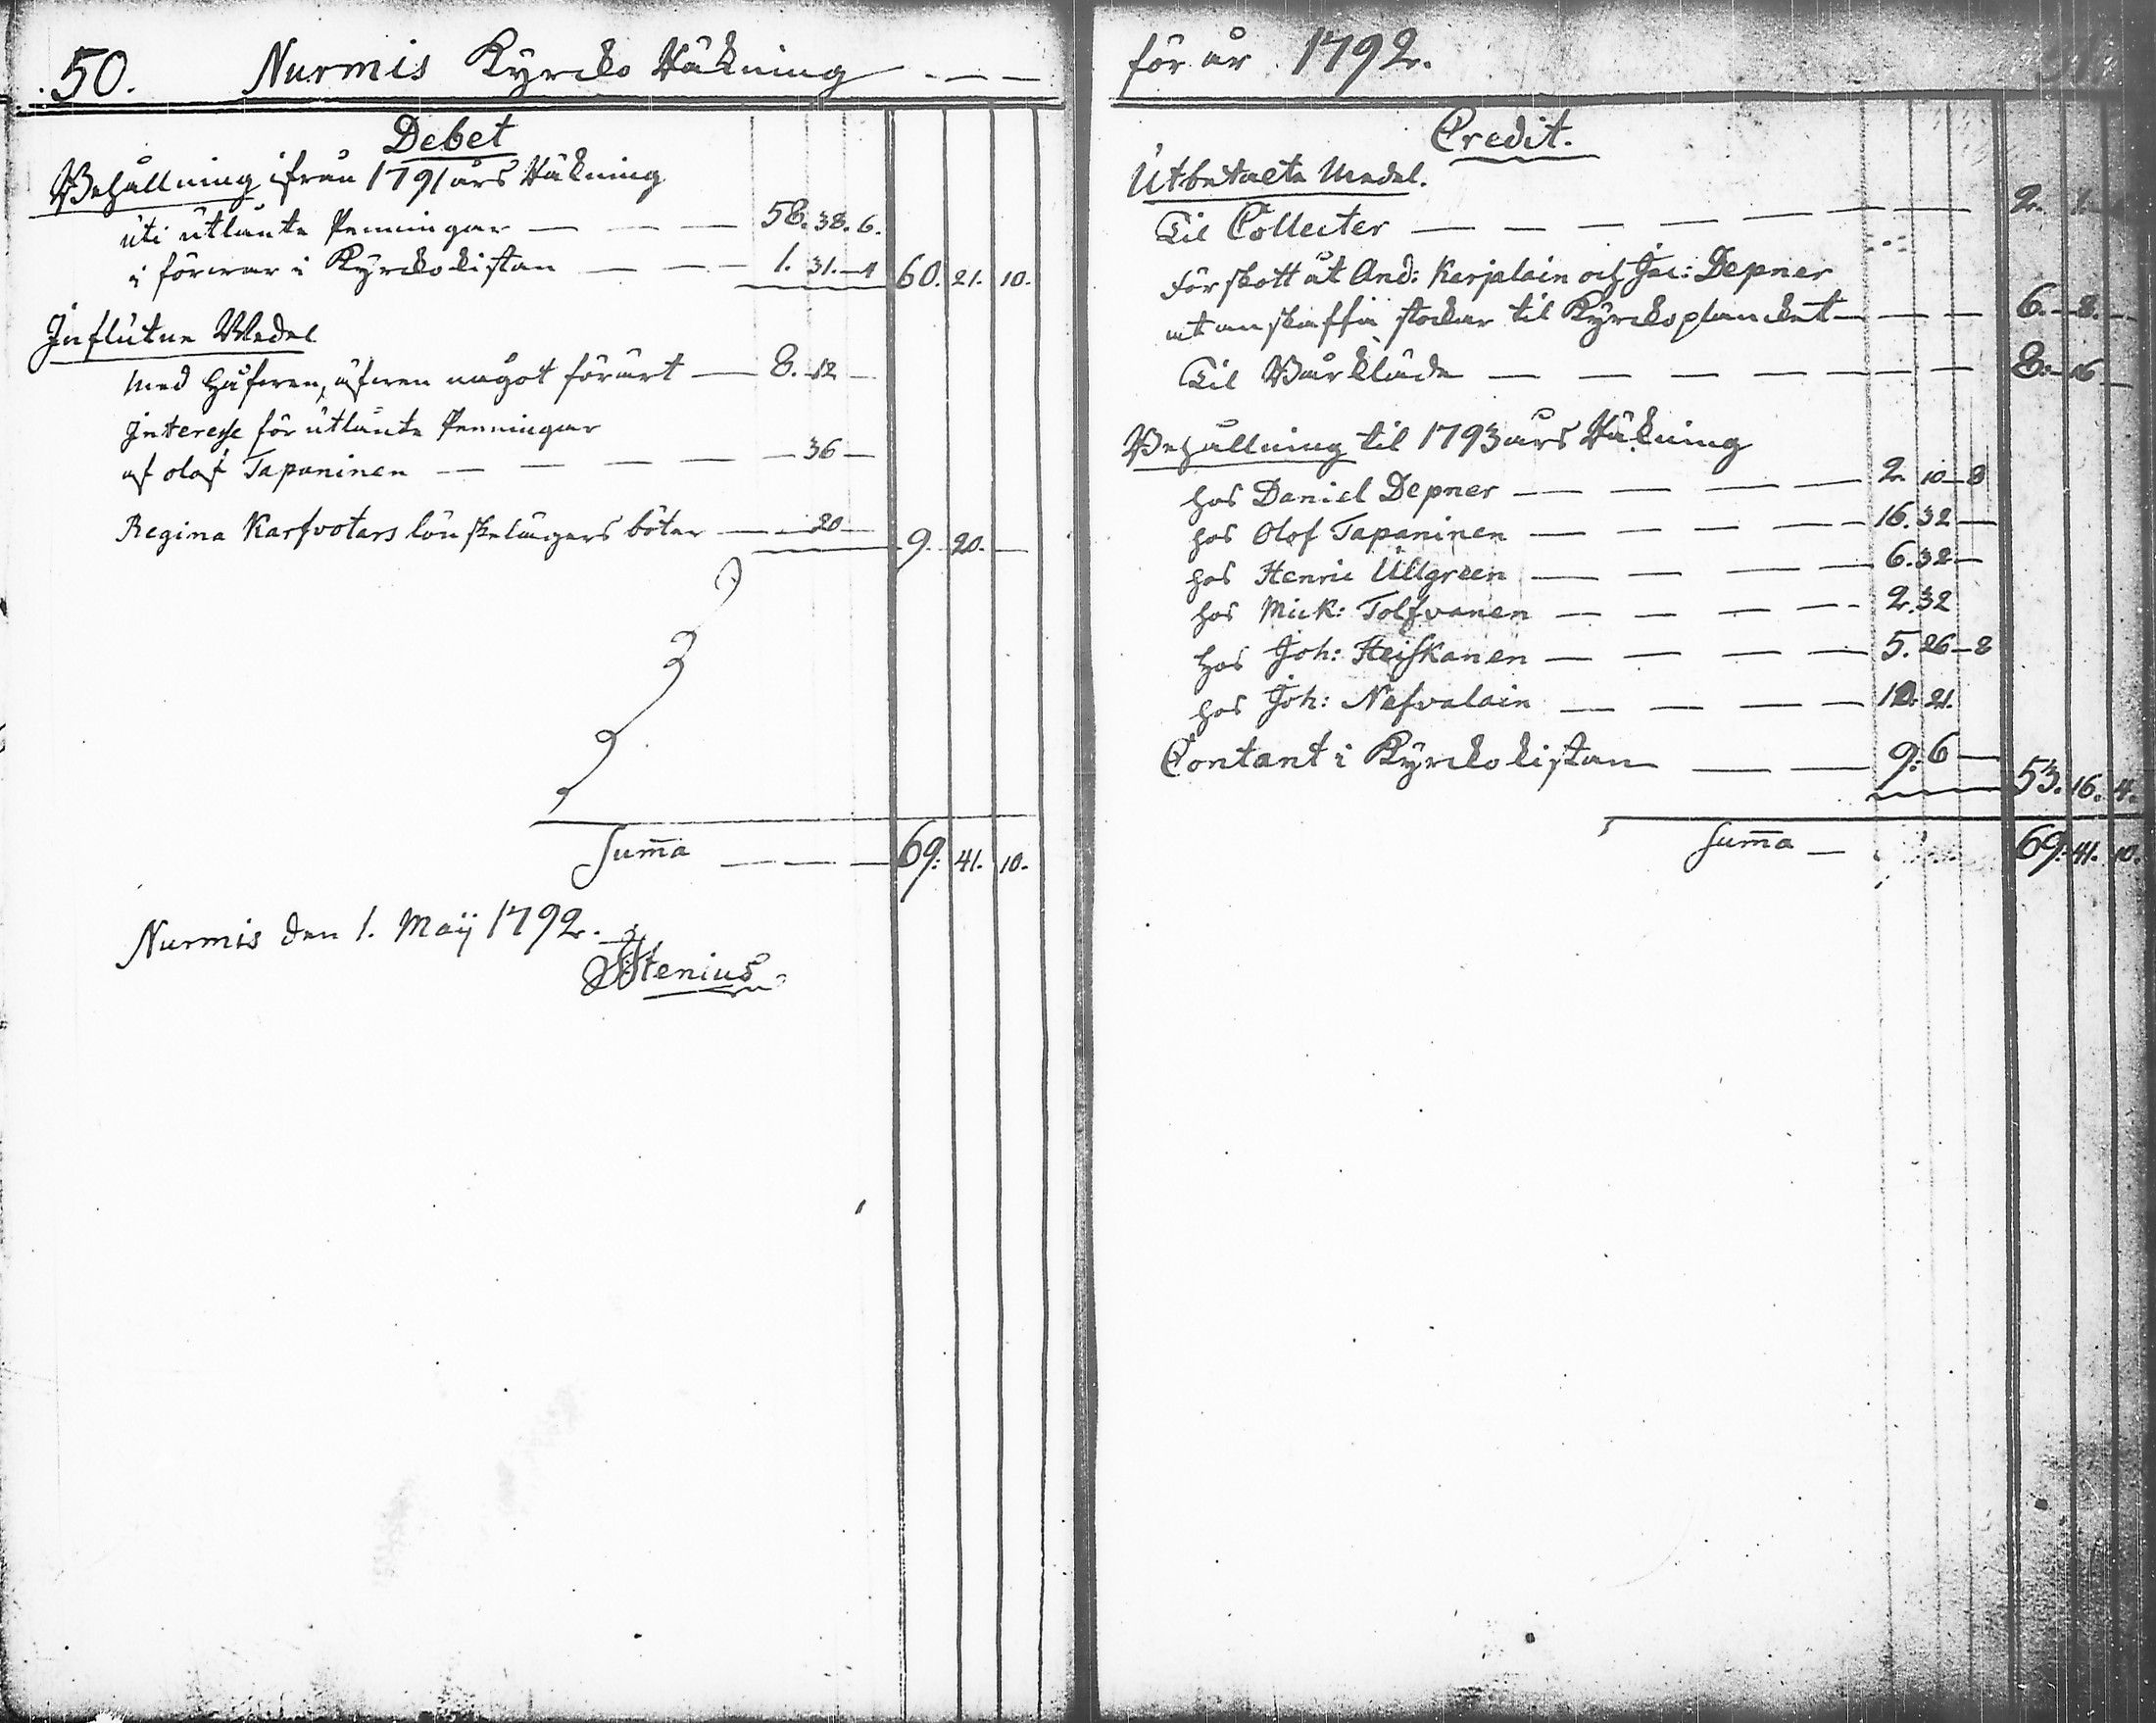 50. Nurmis Kyrcko Räkning
Debet
Behållning ifrån 1791 års Räkning
uti utlånte Penningar 58. 38. 6.
i förwar i Kyrckokistan 1. 31. 4 60. 21. 10.
Influtne Medel
med Håfwen, äfwen något förärt 8. 12
Interesse för utlånte Penningar
af olof Tapaninen 36
Regina Karfvotars lönskelägers böter 20 9. 20.
Sum̅a 69. 41. 10.
Nurmis den 1. Maÿ 1792.
Stenius
för år 1792.
Credit.
Utbetalte Medel.
Til Collecter 2. 1.
Förskott åt And: Karjalain och Jac: Depner
at anskaffa stockar til Kyrckoplancket 6. 8.
Til Bårkläde 8. 16
Behållning til 1793 års Räkning
hos Daniel Depner 2 10 8
hos Olof Tapaninen 16. 32
hos Henric Ullgreen 6. 32
hos Mick: Tolfvanen 2. 32
hos Joh: Heiskanen 5. 26 8
hos Joh: Nefvalain 10. 21.
Contant i Kyrckokistan 9. 6 53. 16. 4.
Sum̅a 69. 41. 10.